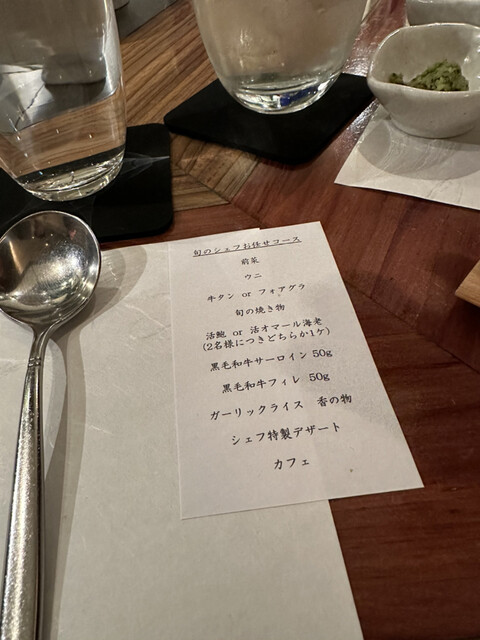 旬のシェフお任せコース
前菜
ウニ
牛タン or フォアグラ
旬の焼き物
活鮑 or 活オマール海老
(2名様につきどちらか1ケ)
黒毛和牛サーロイン 50g
黒毛和牛フィレ 50g
ガーリックライス 香の物
シェフ特製デザート
カフェ